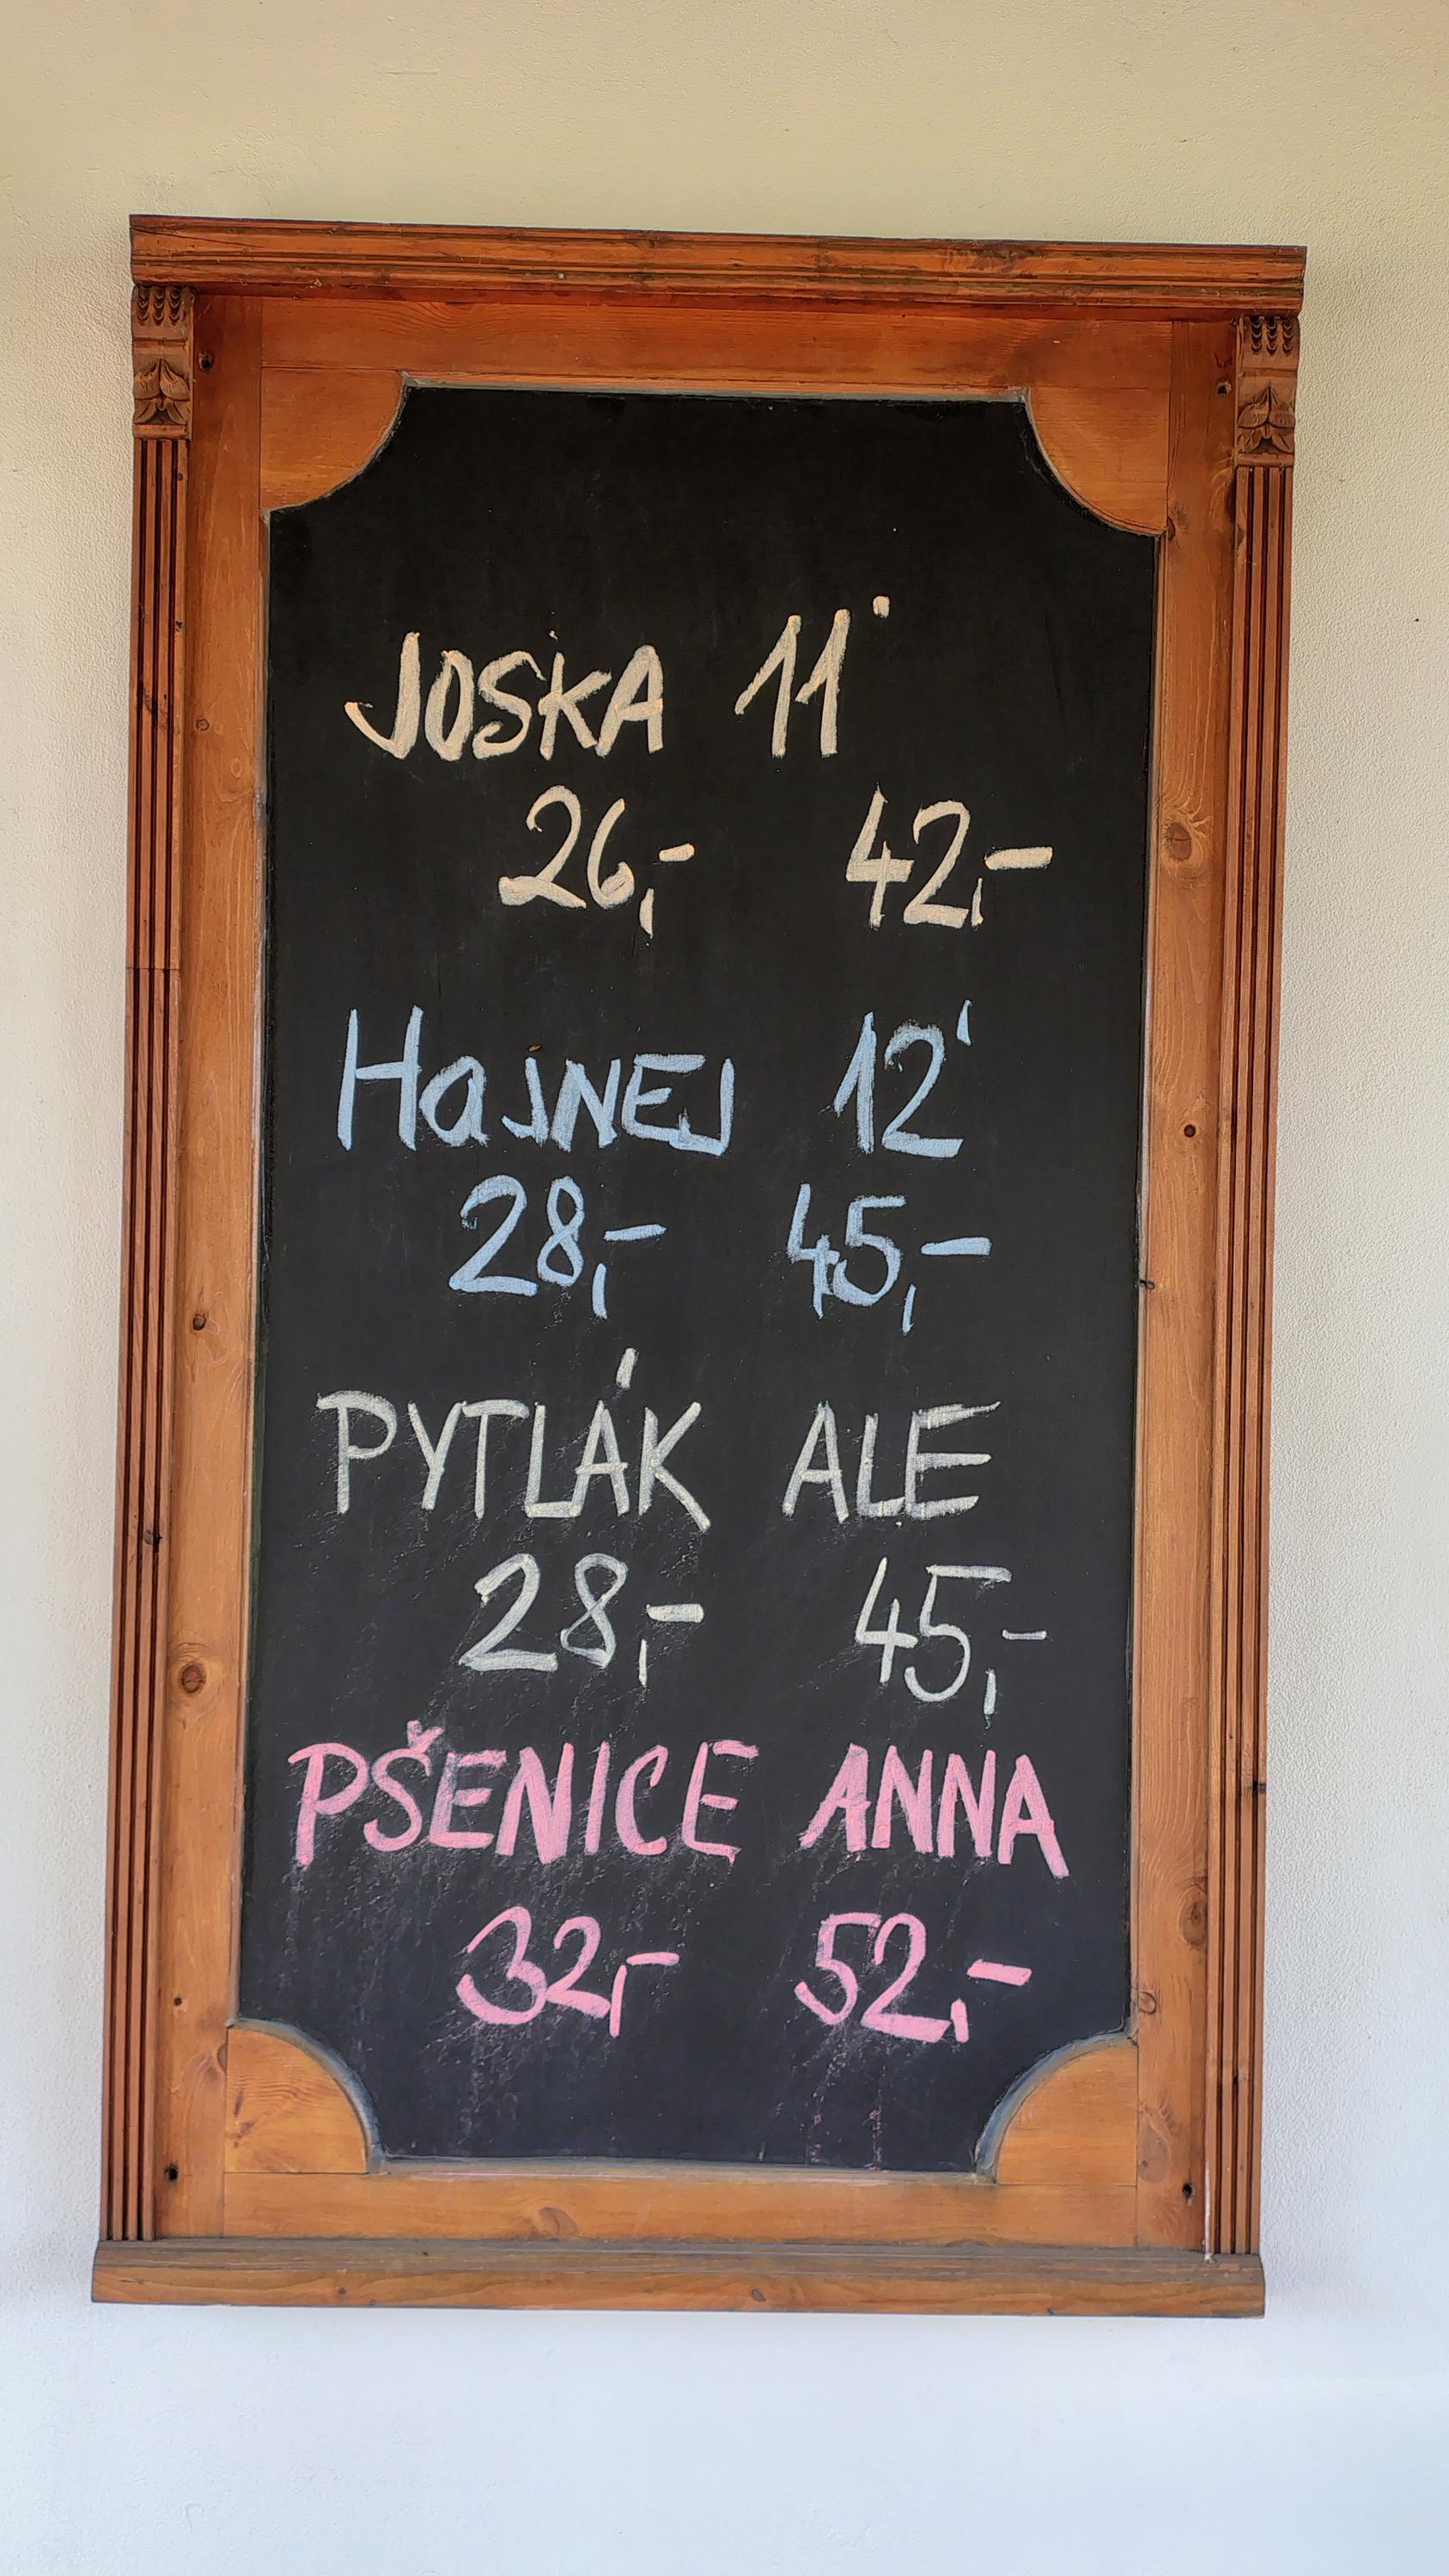 JOSKA 11°
26,- 42,-
HaJNEJ 12°
28,- 45,-
PYTLÁK ALE
28,- 45,-
PŠENICE ANNA
32,- 52,-